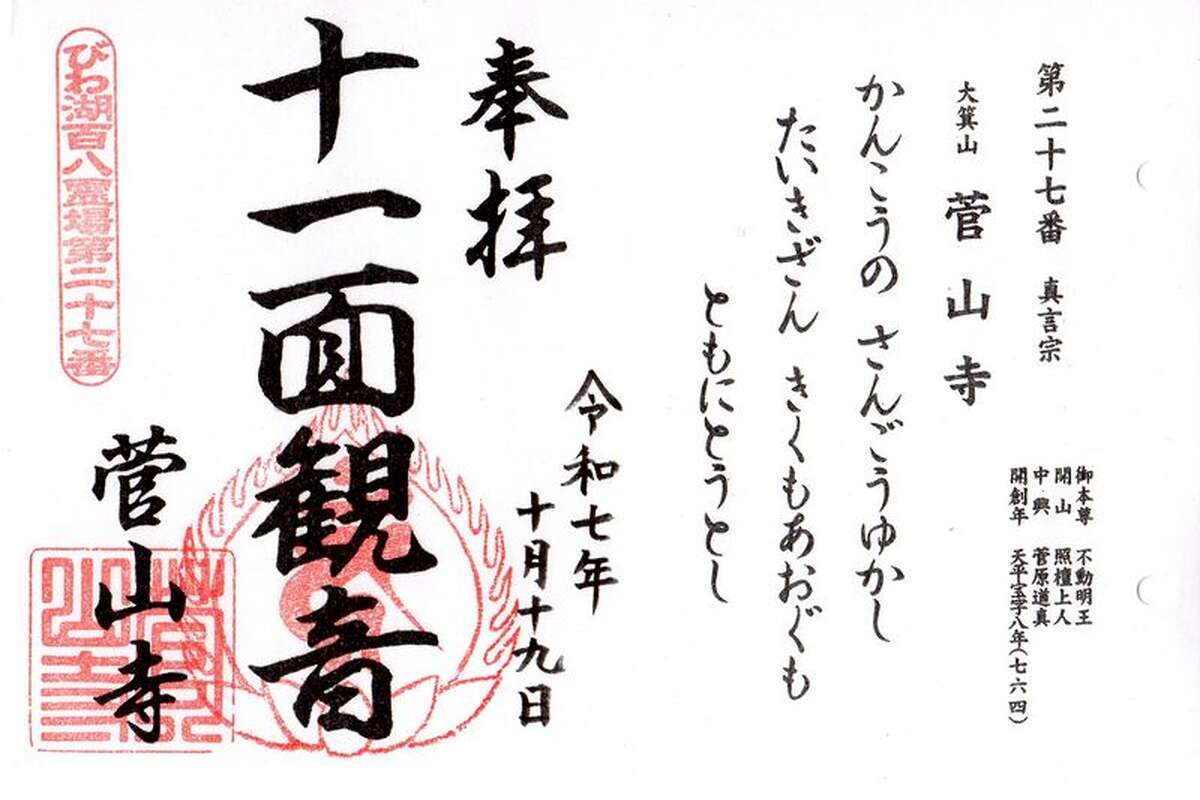 第二十七番 真言宗
御本尊 不動明王
開山 照檀上人
中興 菅原道真
開創年 天平宝字八年(七六四)
大箕山 菅山寺
かんこうの さんごうゆかし
たいきざん きくもあおぐも
ともにとうとし
奉拝
令和七年
十月十九日
十一面観音
菅山寺
びわ湖百八霊場第二十七番